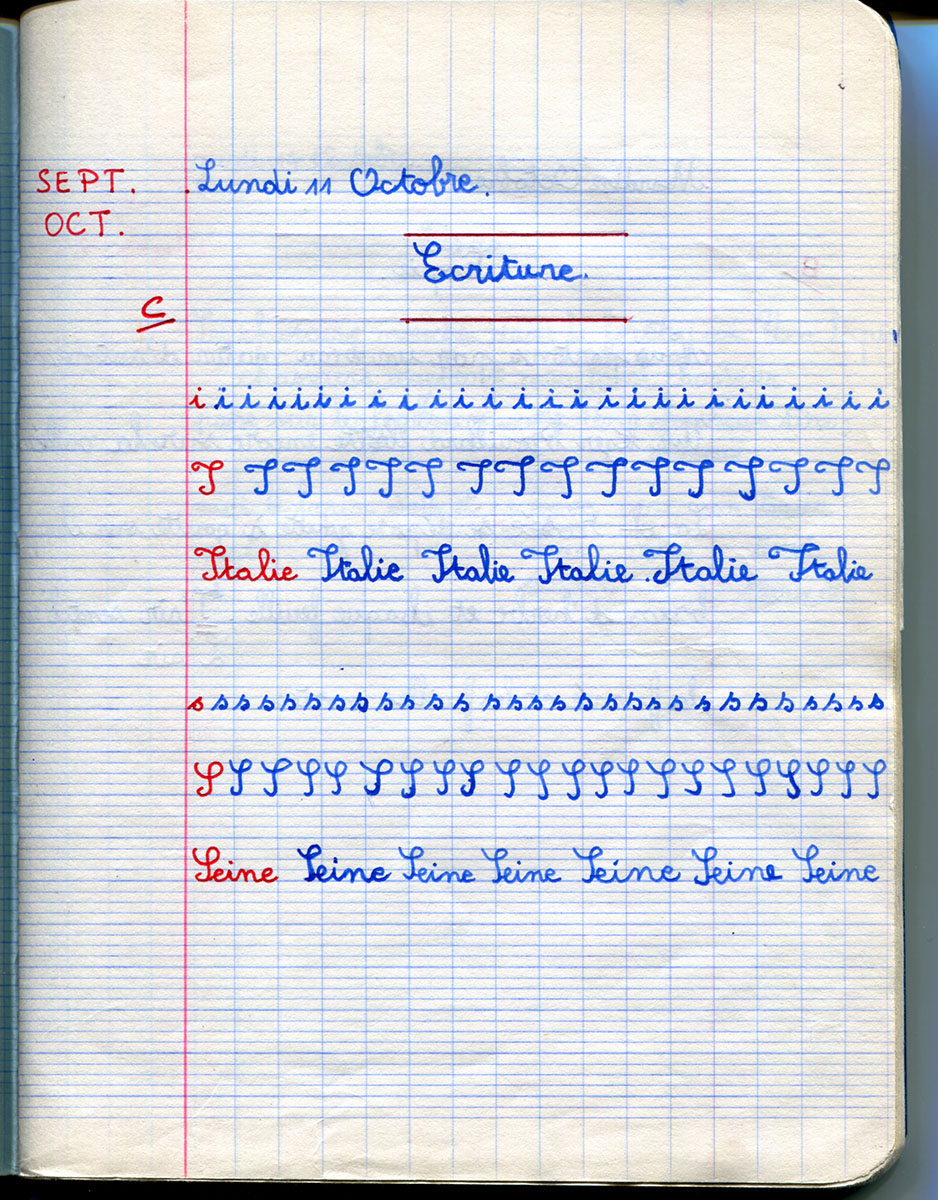 SEPT. Lundi 11 Octobre.
OCT.
Ecriture.
C
i i i i i i i i i i i i i i i i i i i i i i i i i i
I I I I I I I I I I I I I I I I
Italie Italie Italie Italie. Italie Italie
s s s s s s s s s s s s s s s s s s s s s s s s s s s s s
S S S S S S S S S S S S S S S S S S S S S S
Seine Seine Seine Seine Seine Seine Seine